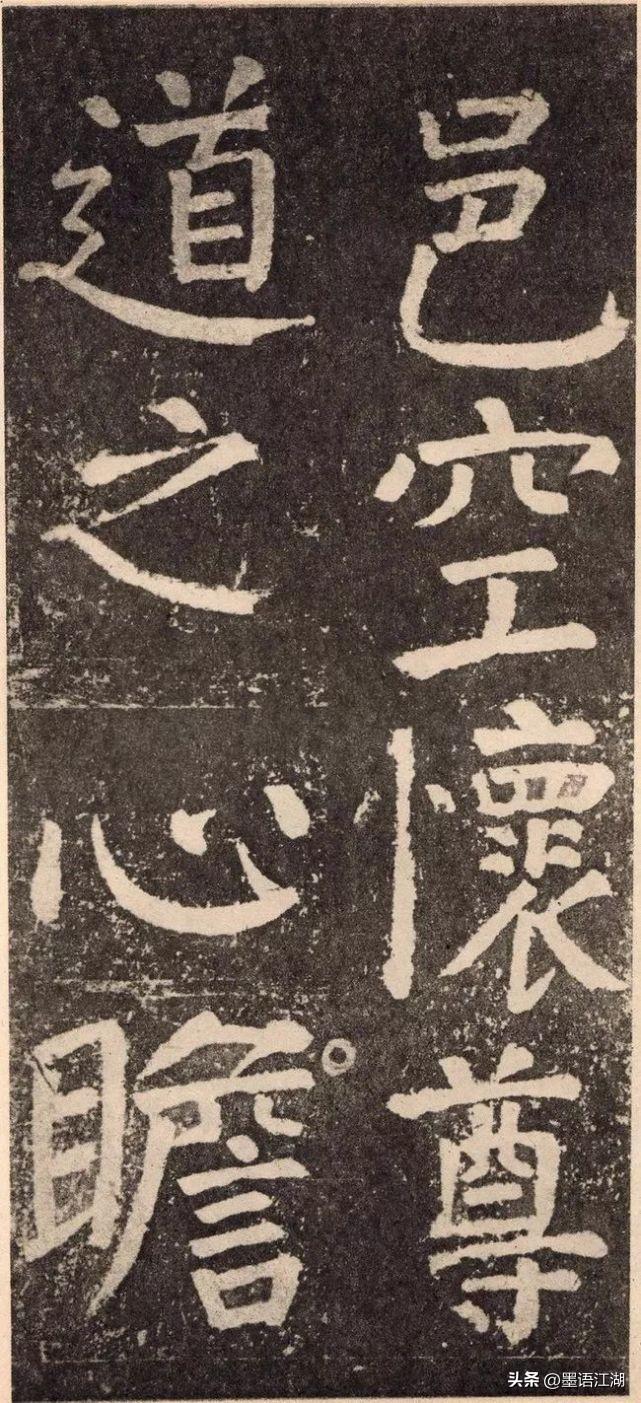 邑空懷尊
道之心瞻
头条 @墨语江湖